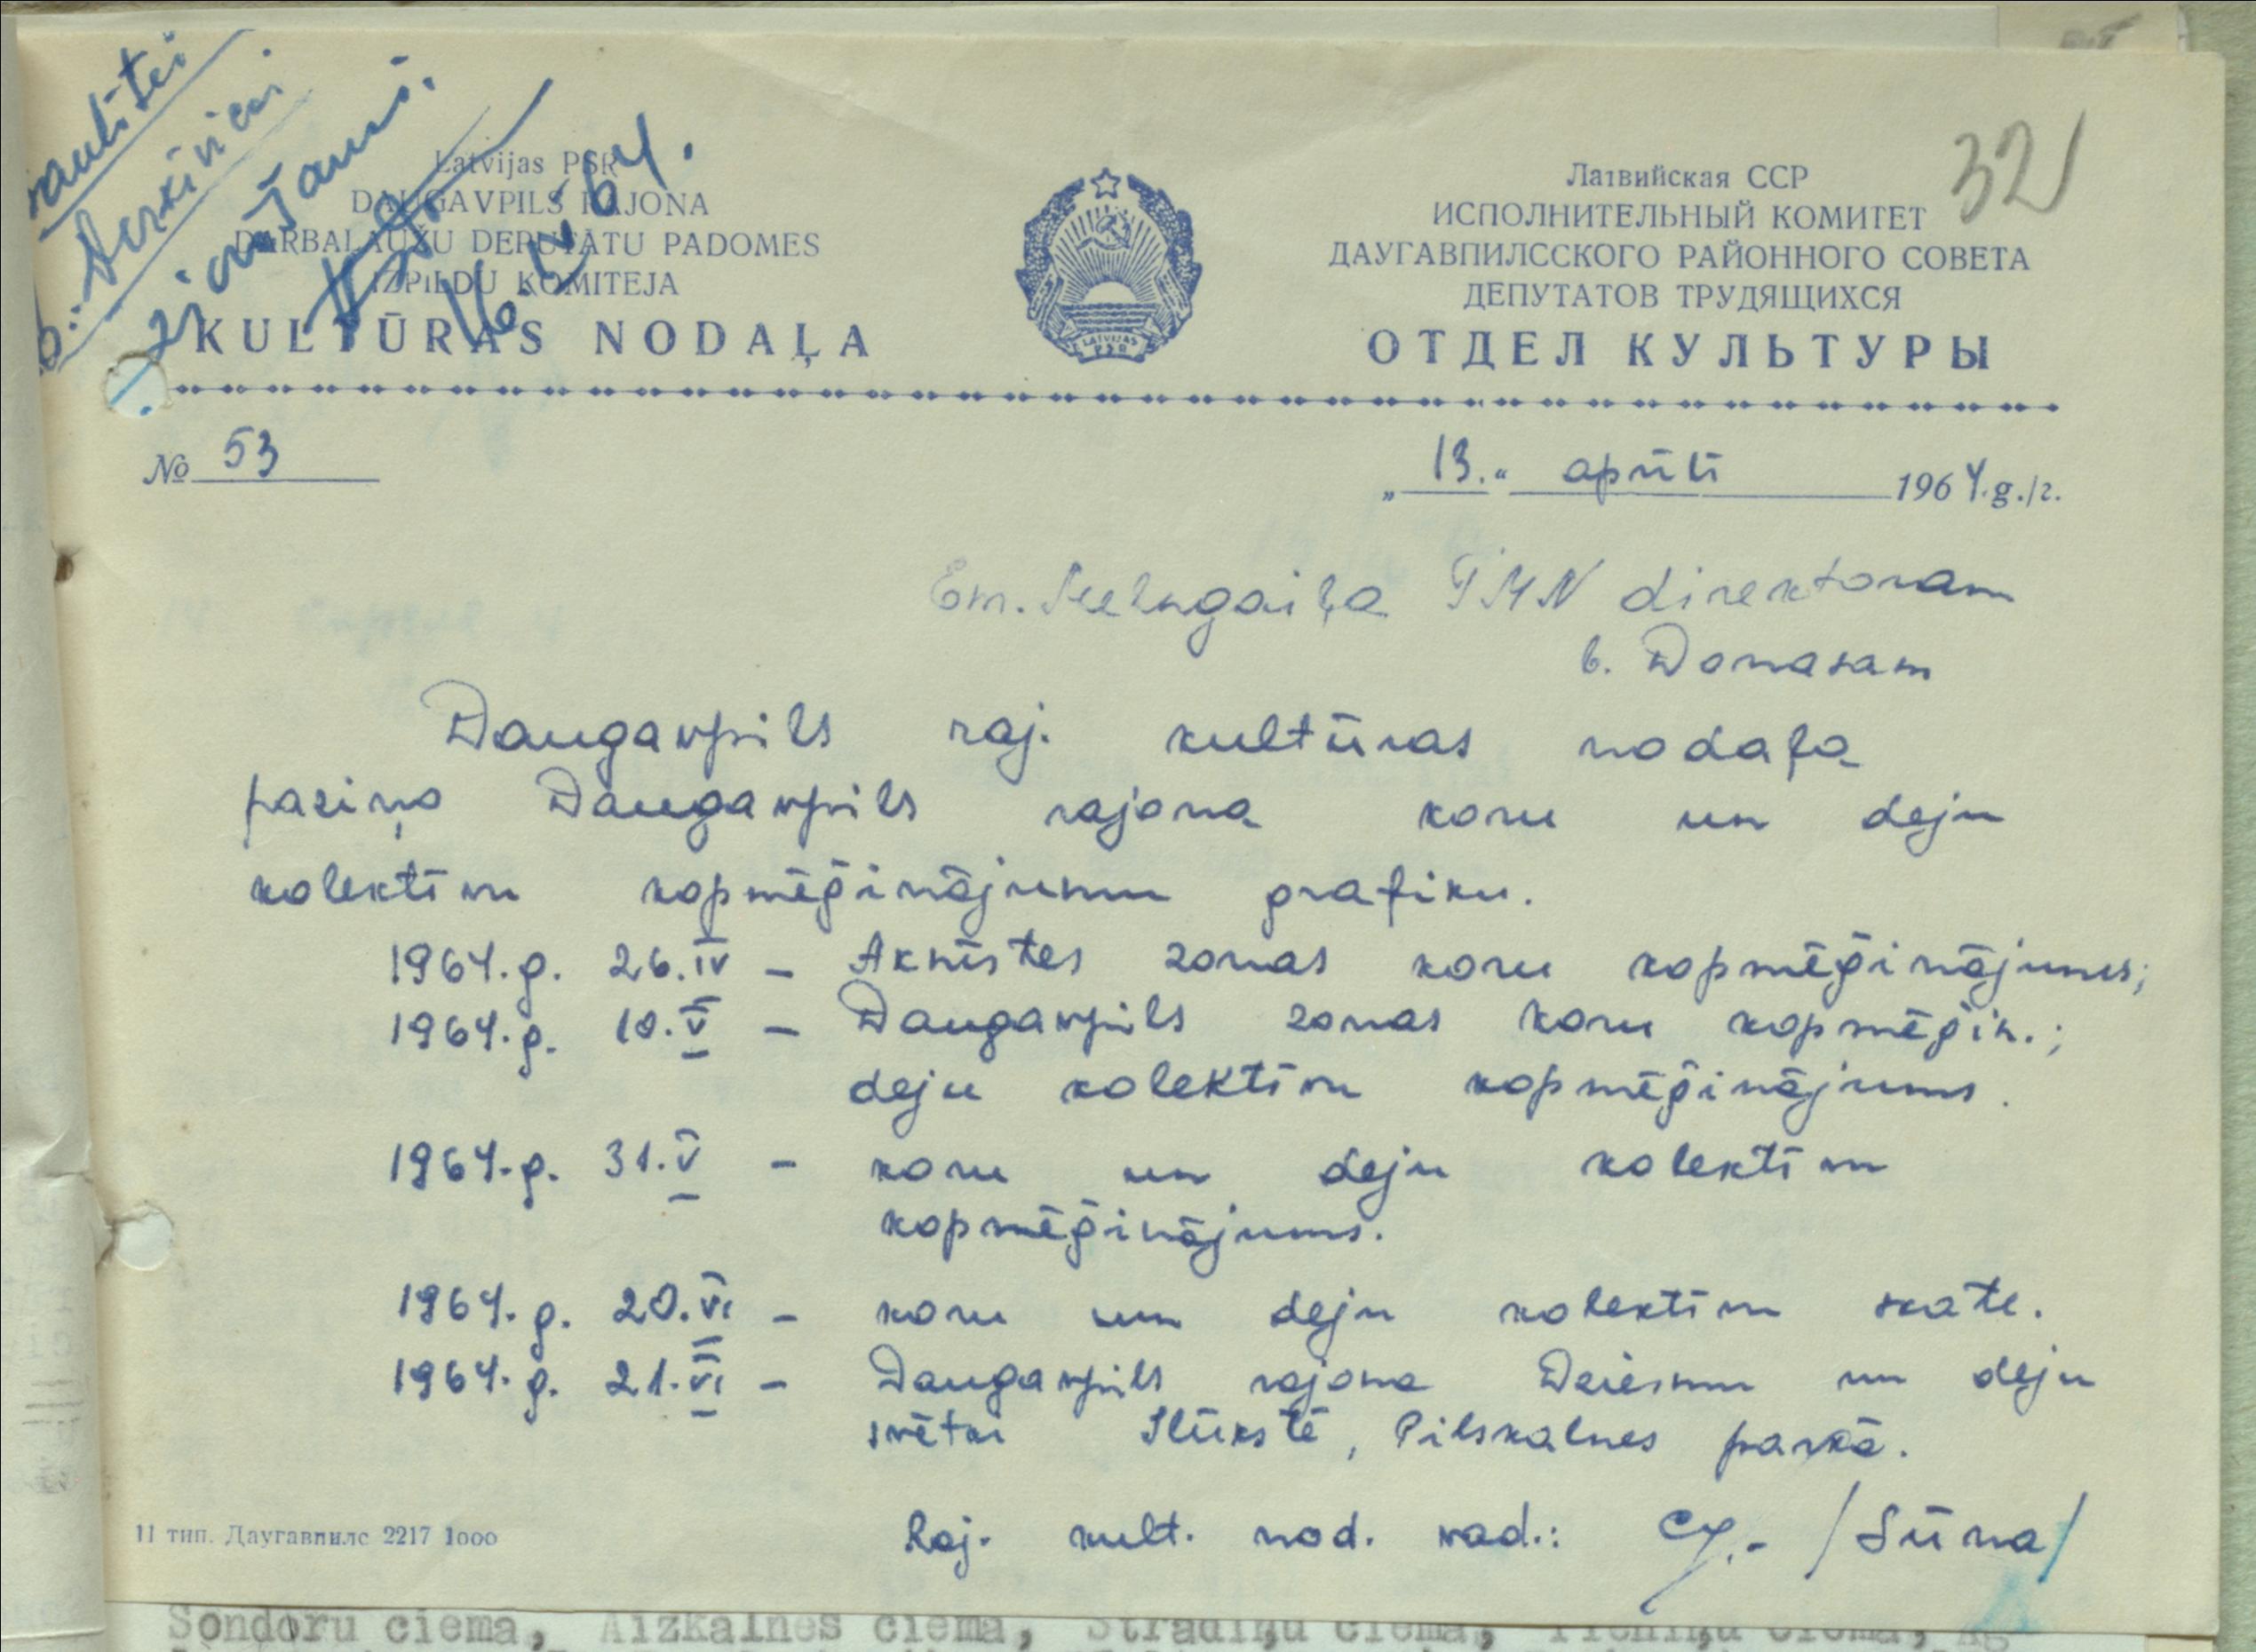 zināšanai.
16.IV 64.
32
Latvijas PSR
DAUGAVPILS RAJONA
DARBAĻAUŽU DEPUTĀTU PADOMES
IZPILDU KOMITEJA
KULTŪRAS NODAĻA
LATVIJAS
PSR
Латвийская ССР
ИСПОЛНИТЕЛЬНЫЙ КОМИТЕТ
ДАУГАВПИЛССКОГО РАЙОННОГО СОВЕТА
ДЕПУТАТОВ ТРУДЯЩИХСЯ
ОТДЕЛ КУЛЬТУРЫ
№ 53
„13.“ aprīlī 1964.g./г.
Em. Melngaiļa TMN direktoram
b. Donasam
Daugavpils raj. kultūras nodaļa
paziņo Daugavpils rajona koru un deju
kolektīvu kopmēģinājumu grafiku.
1964.g. 26.IV – Aknīstes zonas koru kopmēģinājums;
1964.g. 10.V – Daugavpils zonas koru kopmēģin.;
deju kolektīvu kopmēģinājums.
1964.g. 31.V – koru un deju kolektīvu
kopmēģinājums.
1964.g. 20.VI – koru un deju kolektīvu skate.
1964.g. 21.VI – Daugavpils rajona Dziesmu un deju
svētki Ilūkstē, Pilskalnes parkā.
Raj. kult. nod. vad.: /Sūna/
11 тип. Даугавпилс 2217 1000
Sondoru ciema, Aizkalnes ciema, Stradiņu ciema,